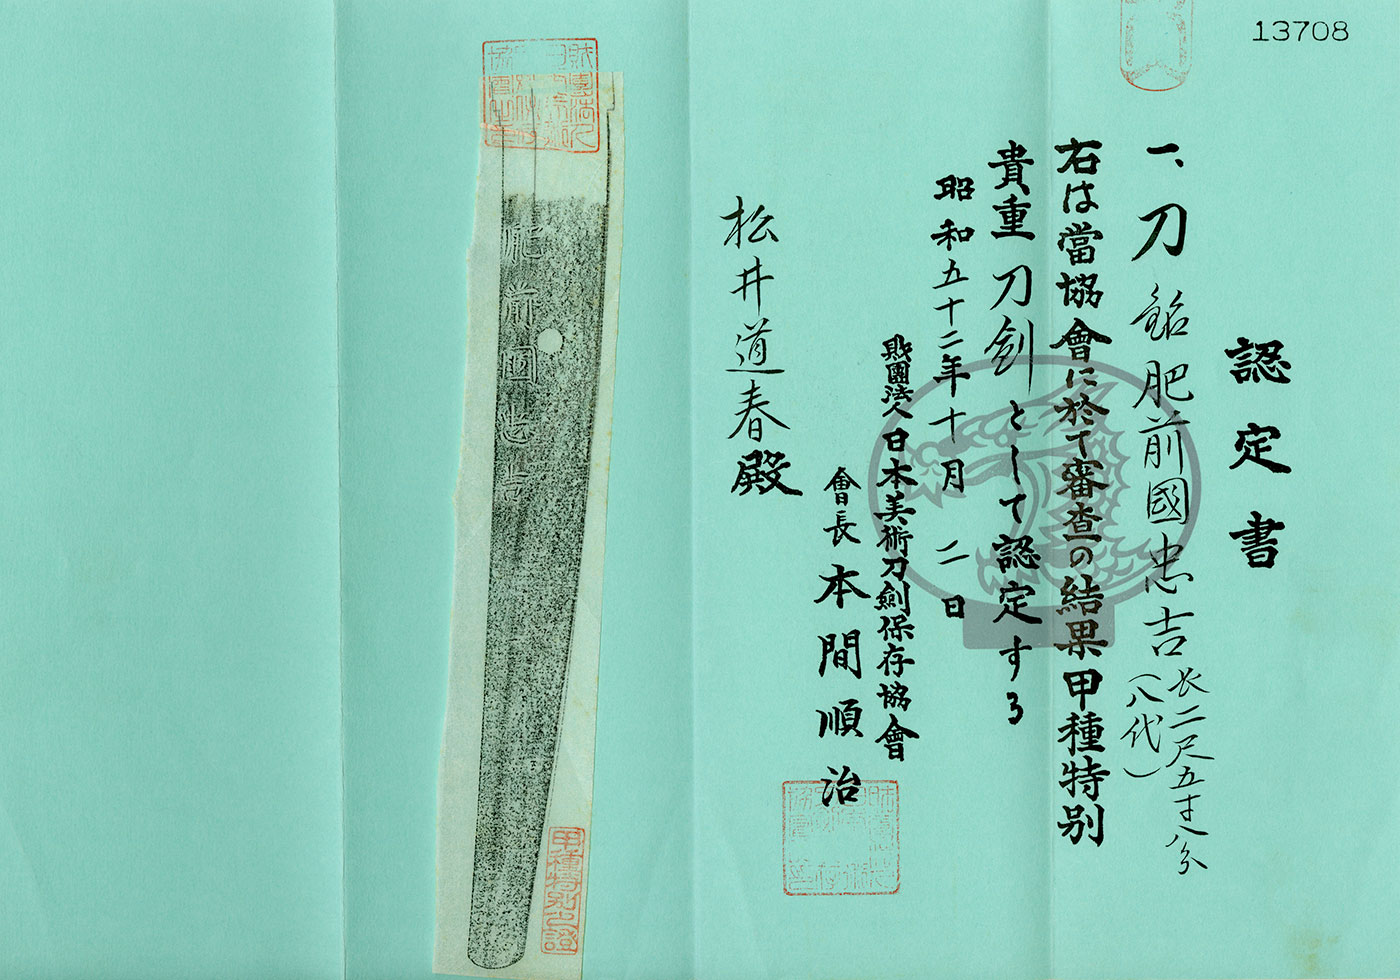 13708
認定書
一、刀 銘 肥前國忠吉(八代)
長二尺五寸八分
右は當協會に於て審査の結果甲種特別
貴重刀剣として認定する
昭和五十二年十月二日
財團法人日本美術刀劍保存協會
會長 本間順治
松井道春殿
肥前國忠吉
甲種特別之證